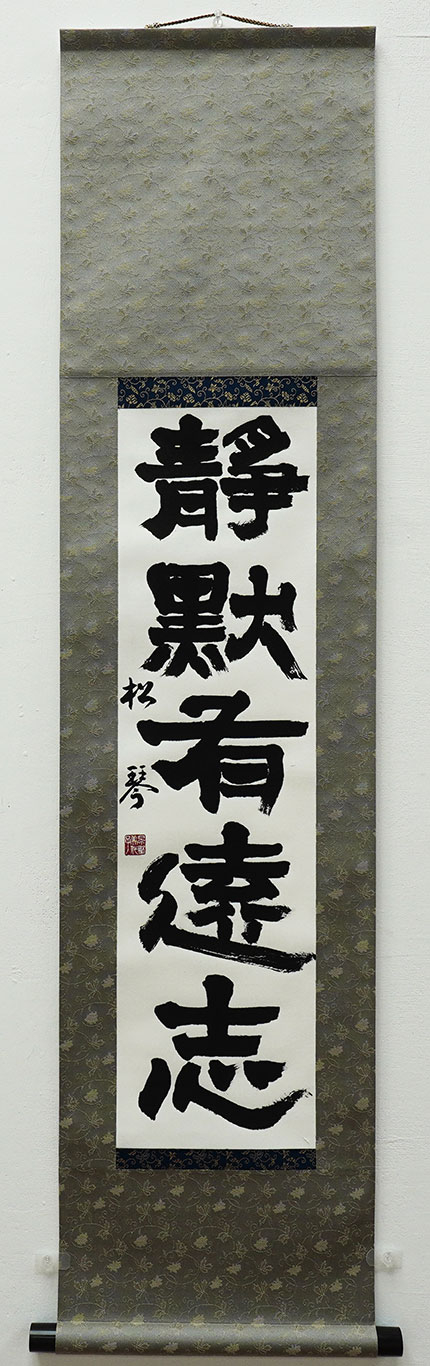 靜默有遠志
松琴